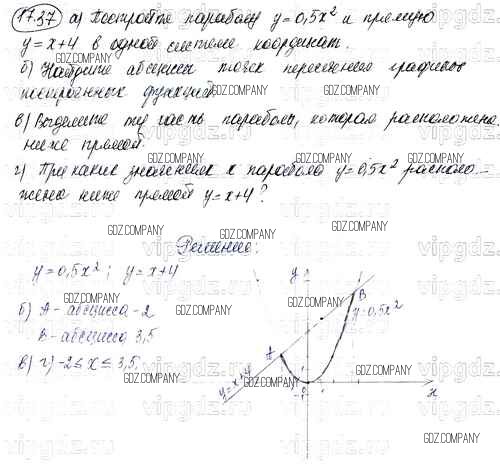 17.37 а) Постройте параболу y=0,5x² и прямую
y=x+4 в одной системе координат.
б) Найдите абсциссы точек пересечения графиков
построенных функций.
в) Выделите ту часть параболы, которая расположена
ниже прямой.
г) При каких значениях x парабола y=0,5x² располо-
жена ниже прямой y=x+4?
Решение:
y=0,5x²; y=x+4
б) A - абсцисса -2
B - абсцисса 3,5
в) г) -2≤x≤3,5
y
B
y=0,5x²
A
y=x+4
x
GDZ.COMPANY
vipgdz.ru